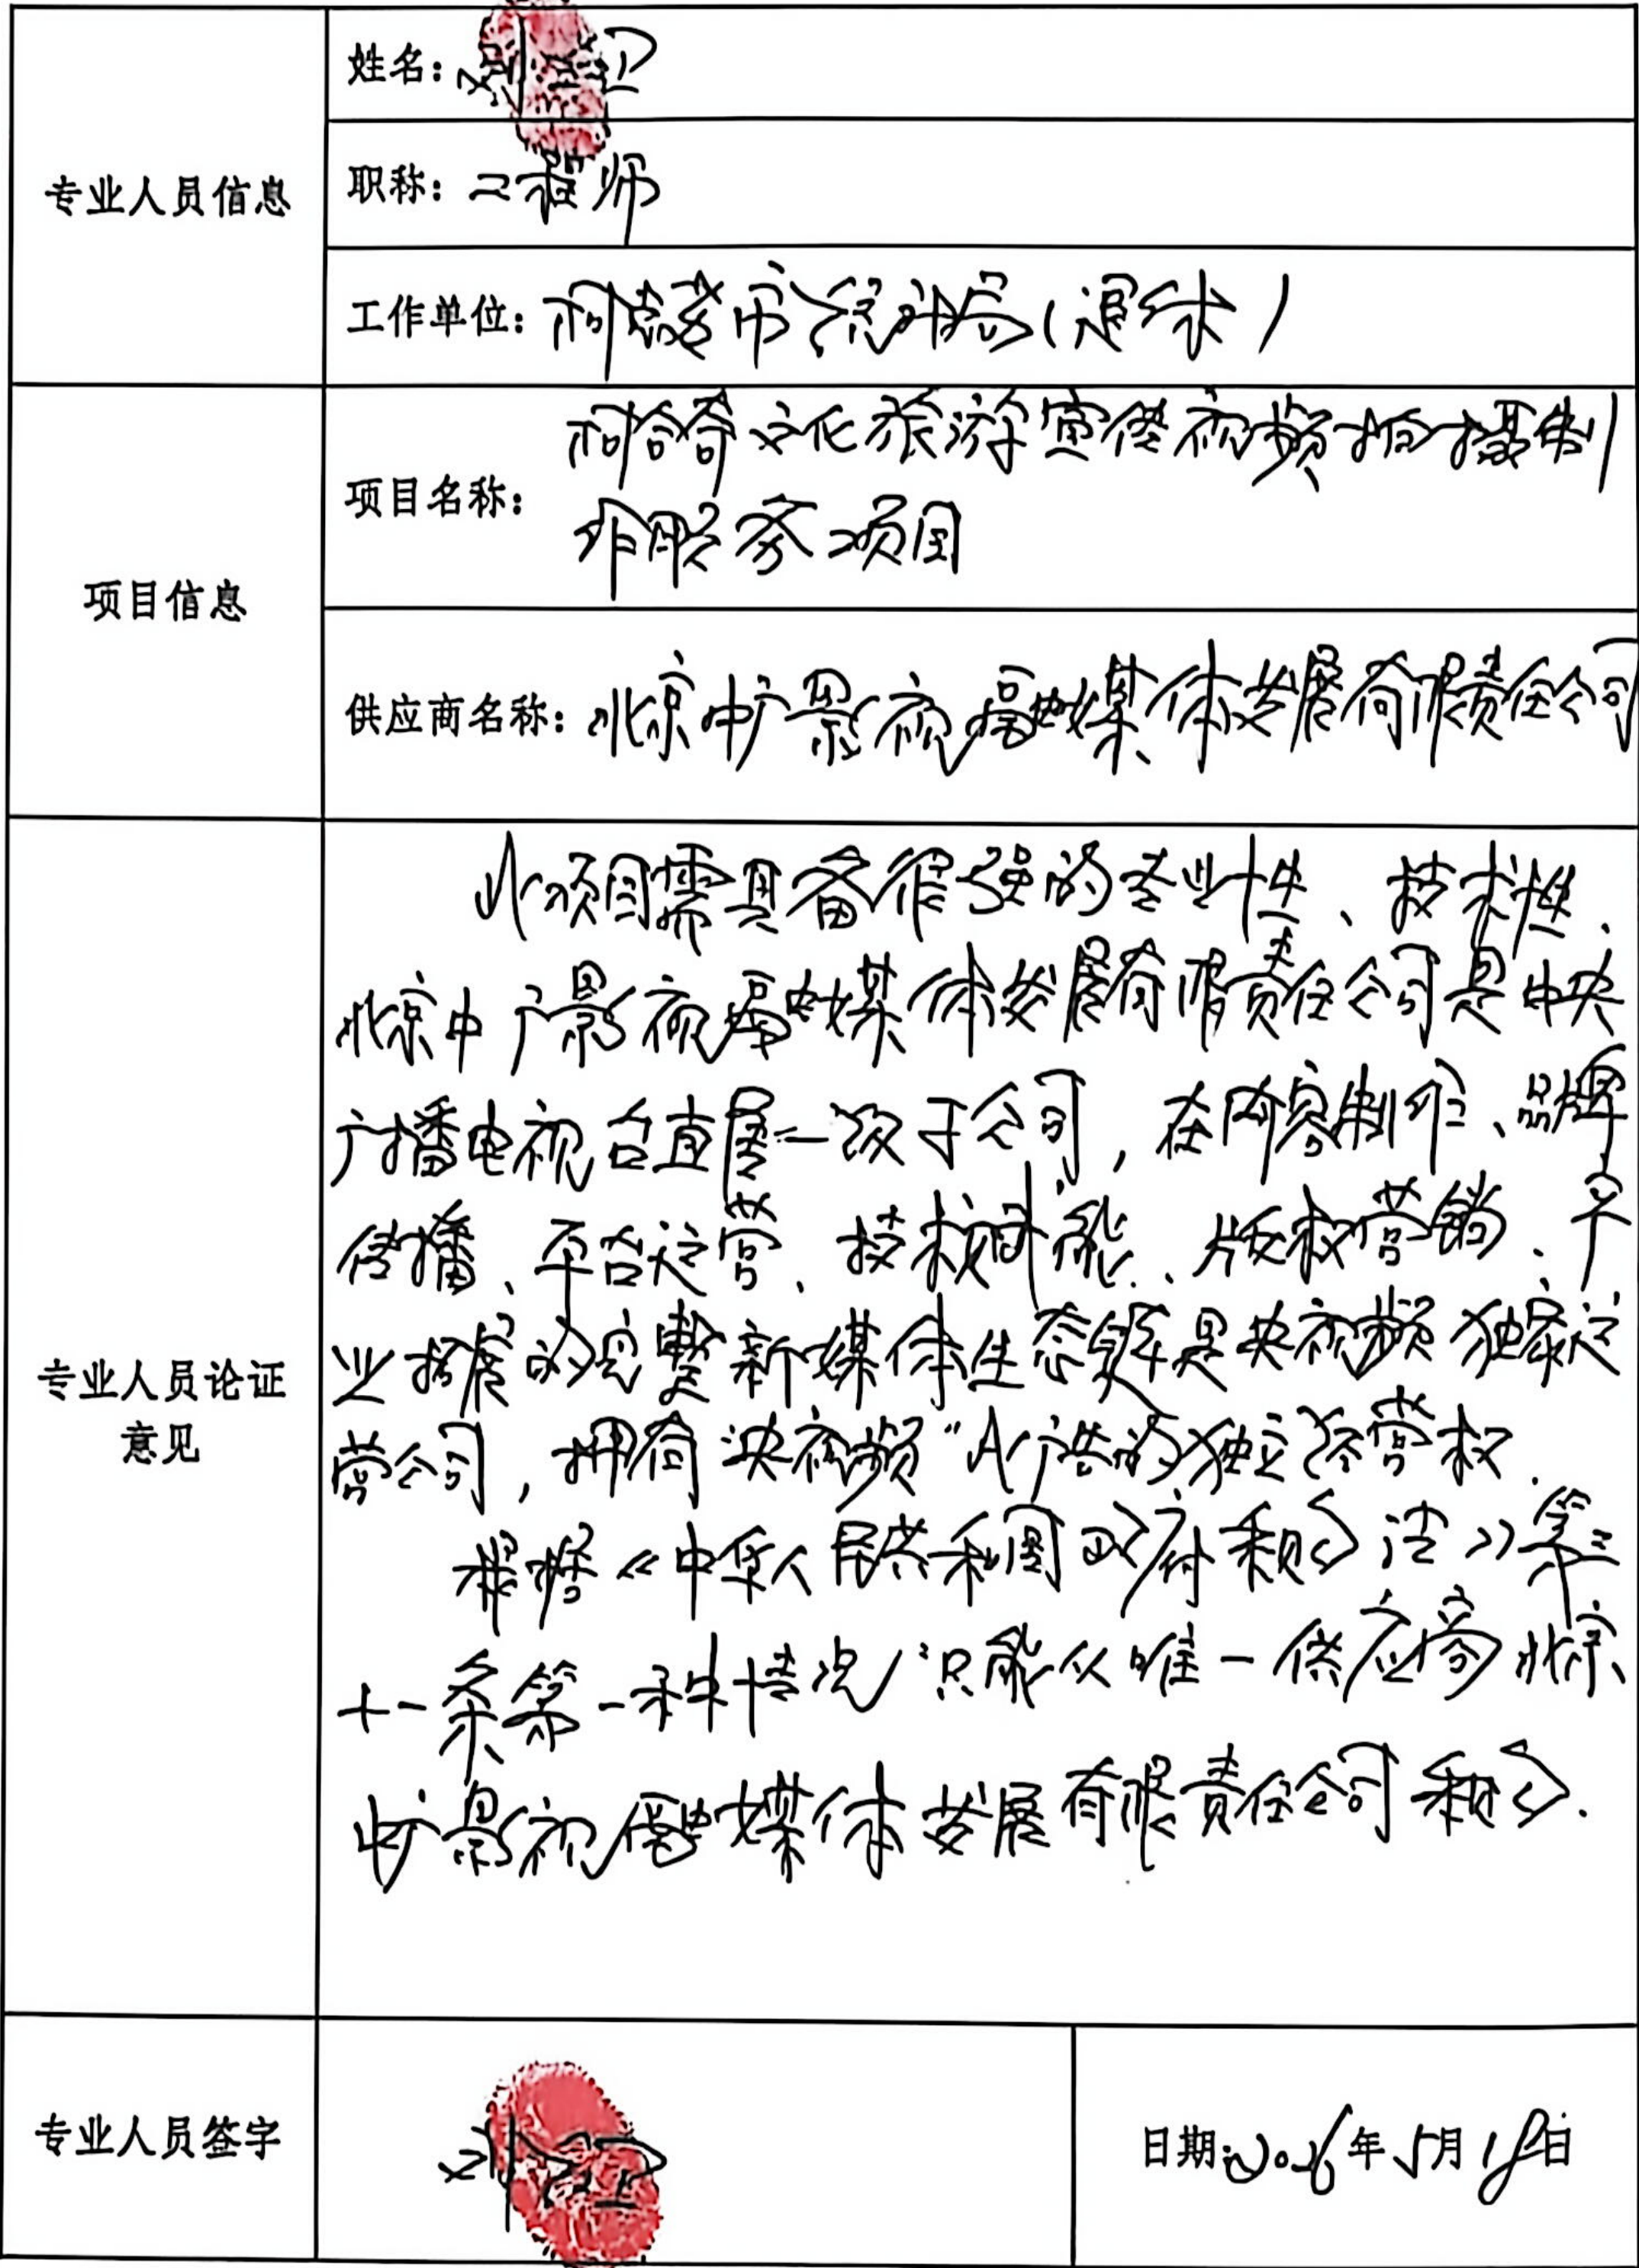 专业人员信息
姓名：
职称：工程师
工作单位：阿克苏市统计局（退休）
项目信息
项目名称：
阿合奇文化旅游宣传视频拍摄制
作服务项目
供应商名称：北京中广影视融媒体发展有限责任公司
专业人员论证
意见
此项目需具备很强的专业性、技术性、
北京中广影视融媒体发展有限责任公司是中央
广播电视台直属一级子公司，在内容制作、品牌
传播、平台运营、技术赋能、版权营销、产
业拓展的完整新媒体生态链是央视频独家运
营公司，拥有"央视频"广告的独立经营权.
根据《中华人民共和国政府采购法》第三
十一条第一种情况"只能从唯一供应商北京
中广影视融媒体发展有限责任公司采购.
专业人员签字
日期：2026年5月18日